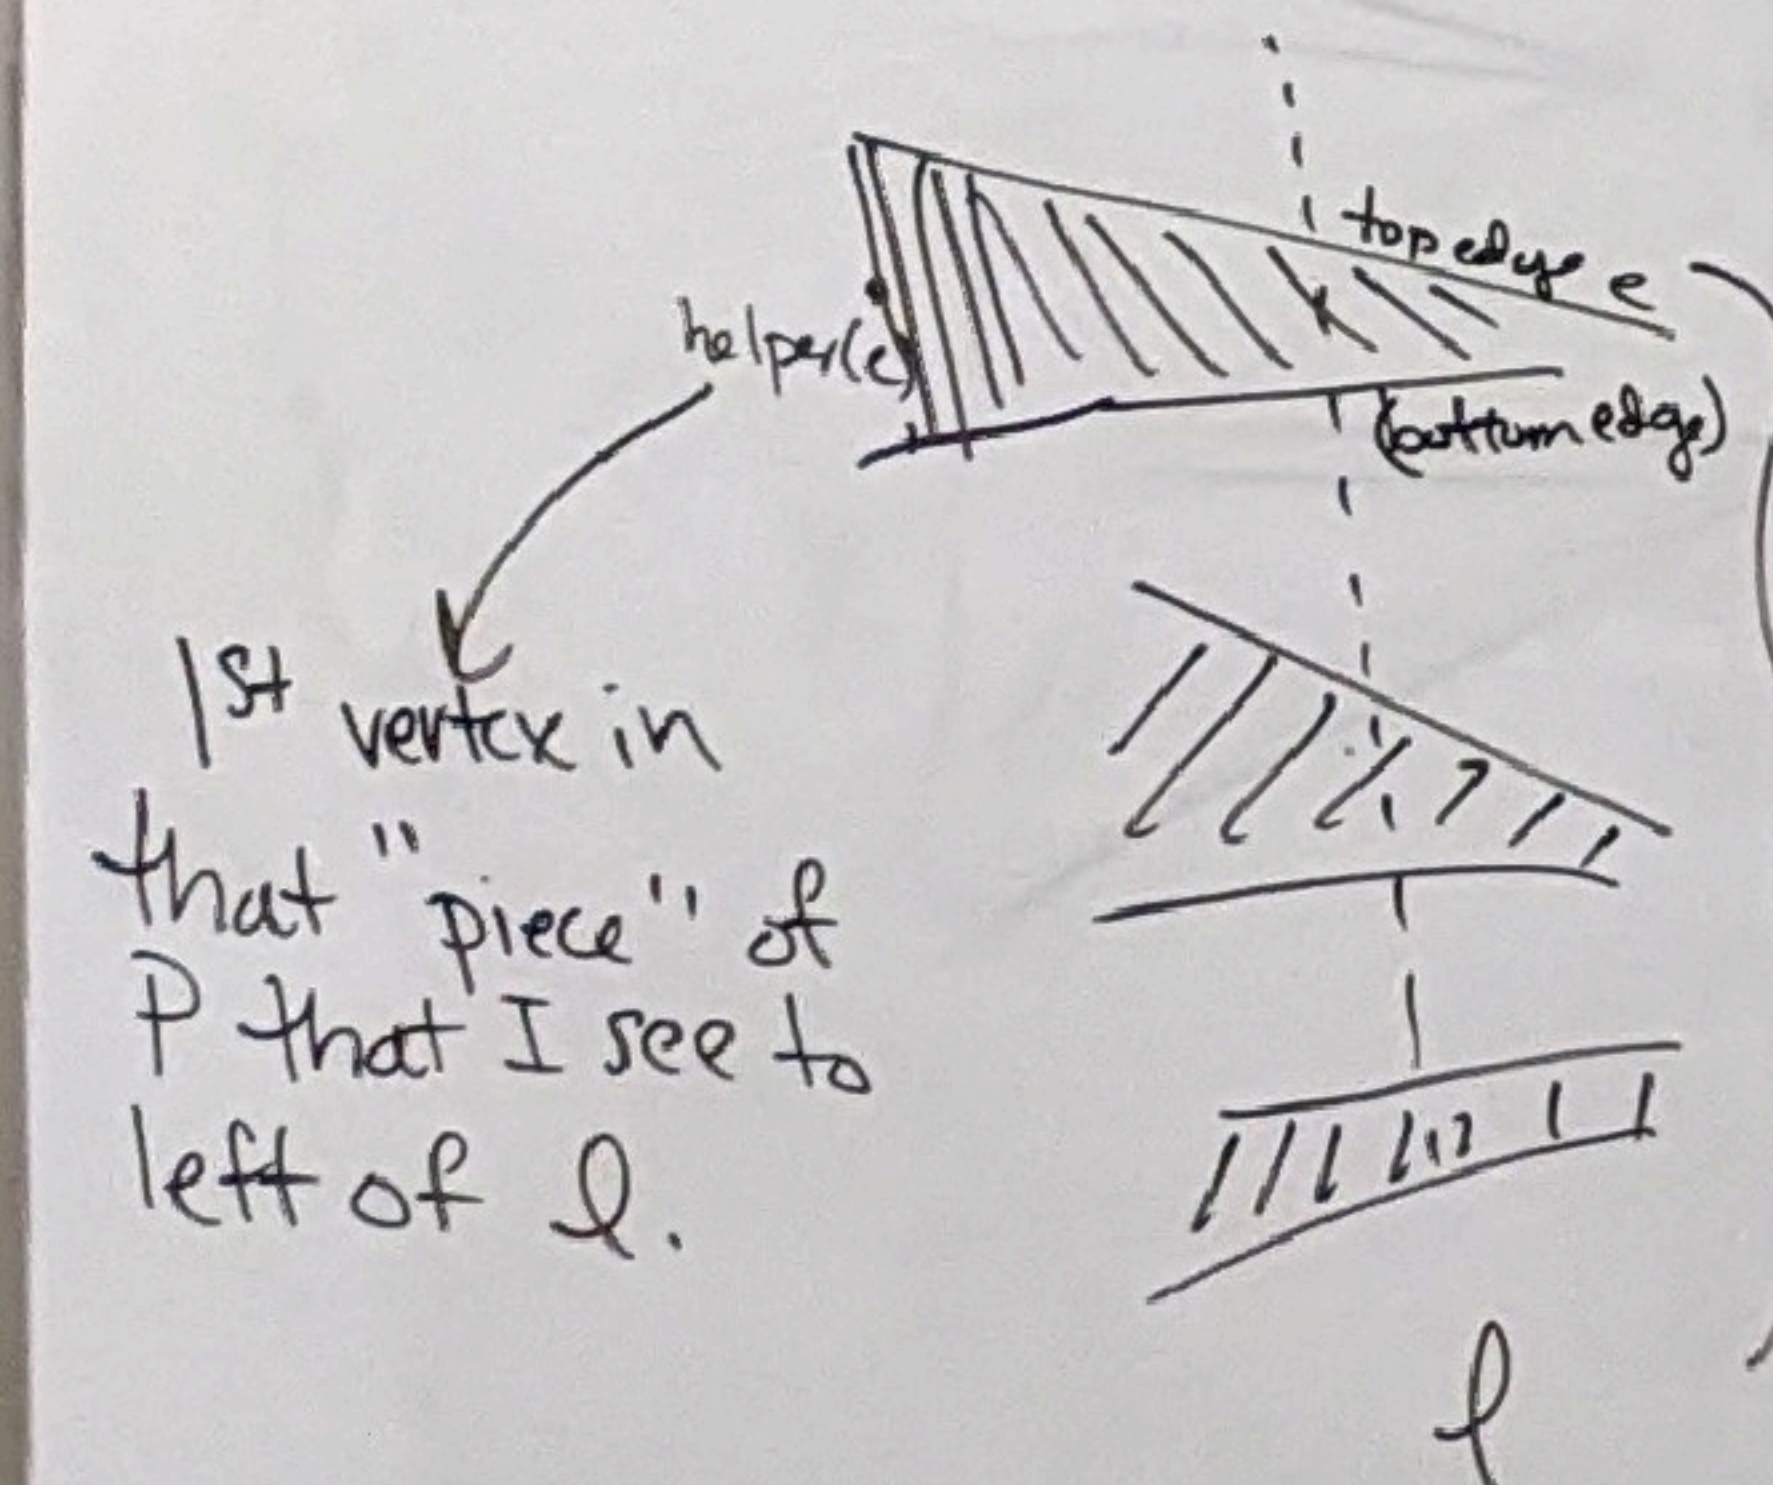 top edge e
helper(e)
(bottom edge)
1st vertex in
that "piece" of
P that I see to
left of l.
l